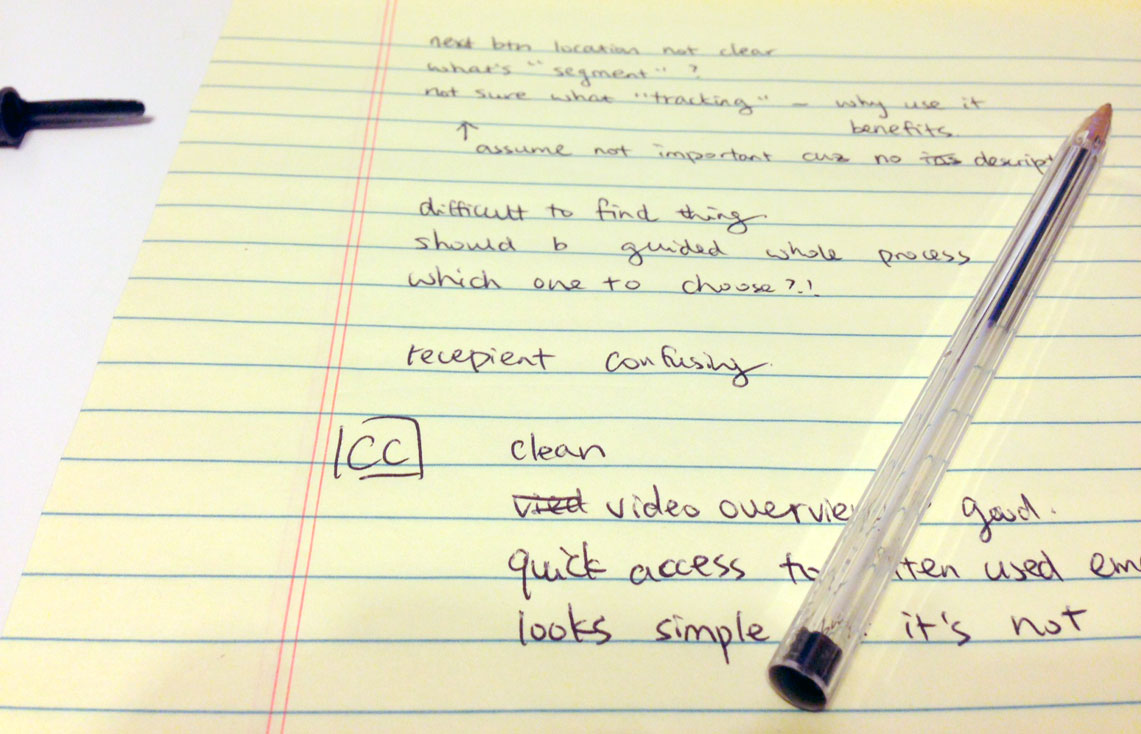 next btn location not clear
what's "segment"?
not sure what "tracking" – why use it
benefits
↑ assume not important cuz no descript
difficult to find thing
should b guided whole process
which one to choose?!
recepient confusing.
CC
clean
video overvie good.
quick access to ften used em
looks simple it's not